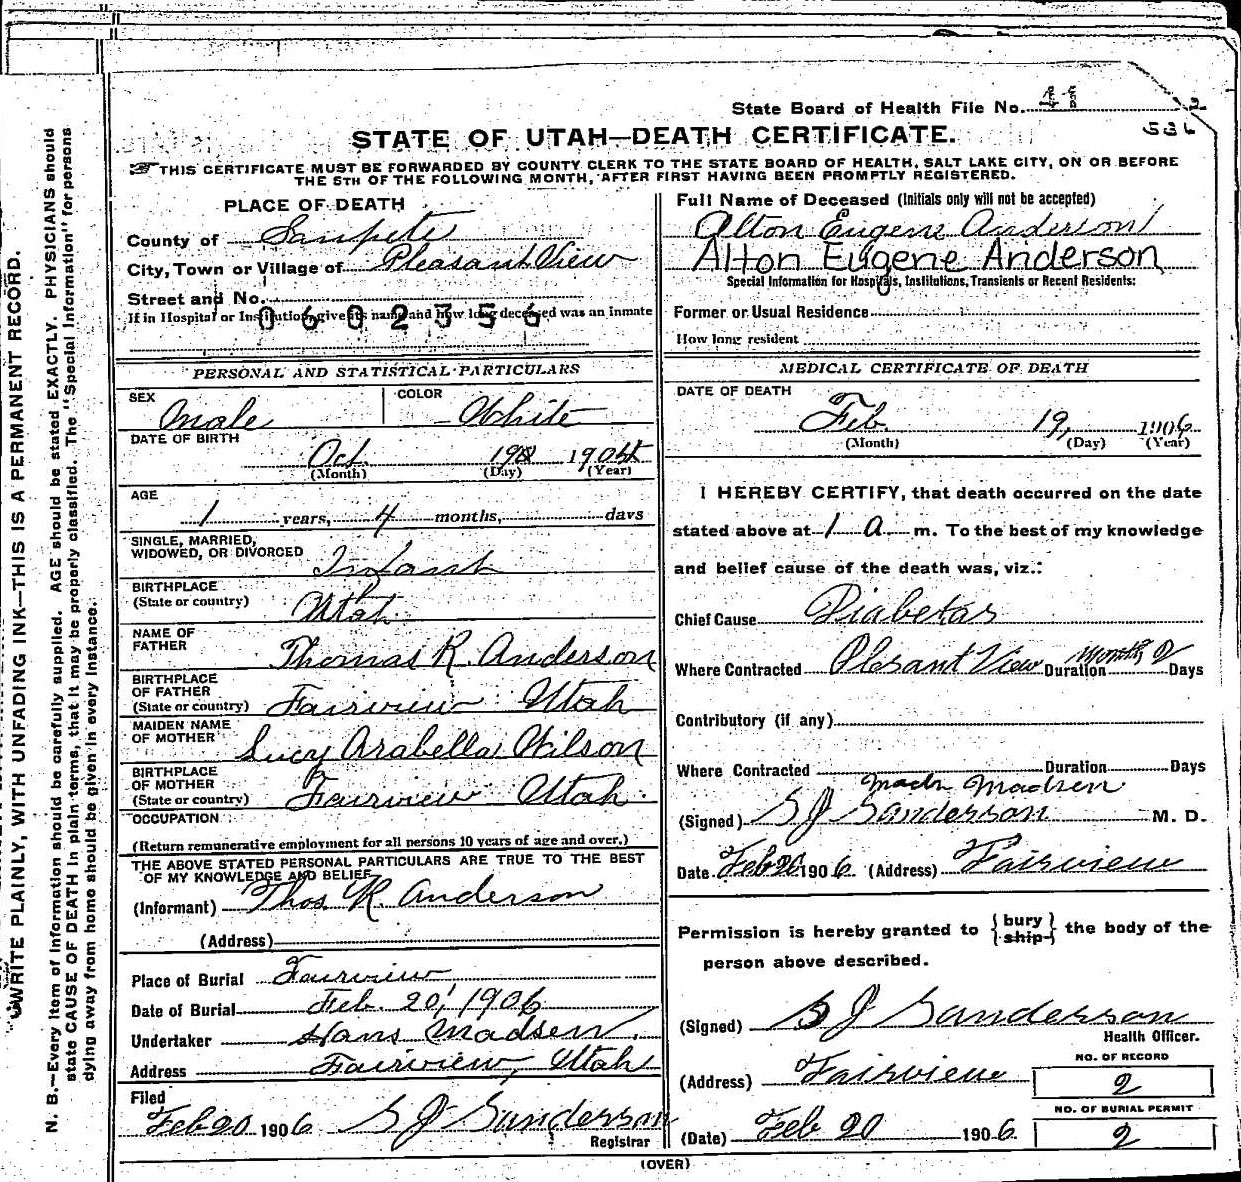 State Board of Health File No.
536
STATE OF UTAH—DEATH CERTIFICATE.
THIS CERTIFICATE MUST BE FORWARDED BY COUNTY CLERK TO THE STATE BOARD OF HEALTH, SALT LAKE CITY, ON OR BEFORE
THE 5TH OF THE FOLLOWING MONTH, AFTER FIRST HAVING BEEN PROMPTLY REGISTERED.
PLACE OF DEATH
County of Sanpete
City, Town or Village of Pleasant View
Street and No.
If in Hospital or Institution, give its name and how long deceased was an inmate
0602356
Full Name of Deceased (Initials only will not be accepted)
Alton Eugene Anderson
Alton Eugene Anderson
Special Information for Hospitals, Institutions, Transients or Recent Residents:
Former or Usual Residence
How long resident
PERSONAL AND STATISTICAL PARTICULARS
SEX Male COLOR White
DATE OF BIRTH
Oct. 190
(Month) (Day) (Year)
AGE
1 years, 4 months, days
SINGLE, MARRIED,
WIDOWED, OR DIVORCED Infant
BIRTHPLACE
(State or country) Utah
NAME OF
FATHER Thomas R. Anderson
BIRTHPLACE
OF FATHER
(State or country) Fairview Utah
MAIDEN NAME
OF MOTHER Lucy Arabella Wilson
BIRTHPLACE
OF MOTHER
(State or country) Fairview Utah.
OCCUPATION
(Return remunerative employment for all persons 10 years of age and over.)
THE ABOVE STATED PERSONAL PARTICULARS ARE TRUE TO THE BEST
OF MY KNOWLEDGE AND BELIEF
(Informant) Thos. R. Anderson
(Address)
Place of Burial Fairview
Date of Burial Feb. 20, 1906
Undertaker Hans Madsen
Address Fairview, Utah
Filed
Feb 20 1906 S J Sanderson
Registrar
MEDICAL CERTIFICATE OF DEATH
DATE OF DEATH
Feb. 19, 1906
(Month) (Day) (Year)
I HEREBY CERTIFY, that death occurred on the date
stated above at 1 a. m. To the best of my knowledge
and belief cause of the death was, viz.:
Chief Cause Diabetas
Where Contracted Plesant View Duration Months 2 Days
Contributory (if any)
Where Contracted Duration Days
Madsen
(Signed) S J Sanderson M. D.
Date Feb 20 1906 (Address) Fairview
Permission is hereby granted to {bury ship} the body of the
person above described.
(Signed) S J Sanderson
Health Officer.
(Address) Fairview
NO. OF RECORD
2
NO. OF BURIAL PERMIT
2
(Date) Feb 20 1906
(OVER)
WRITE PLAINLY, WITH UNFADING INK—THIS IS A PERMANENT RECORD.
N. B.—Every item of information should be carefully supplied. AGE should be stated EXACTLY. PHYSICIANS should
state CAUSE OF DEATH in plain terms, that it may be properly classified. The "Special Information" for persons
dying away from home should be given in every instance.